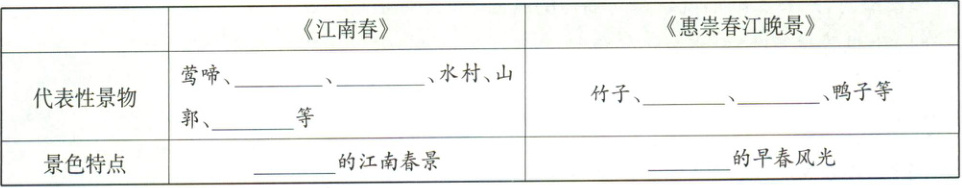 《江南春》 《惠崇春江晚景》
代表性景物 莺啼、________、________、水村、山郭、________等 竹子、________、________、鸭子等
景色特点 ________的江南春景 ________的早春风光